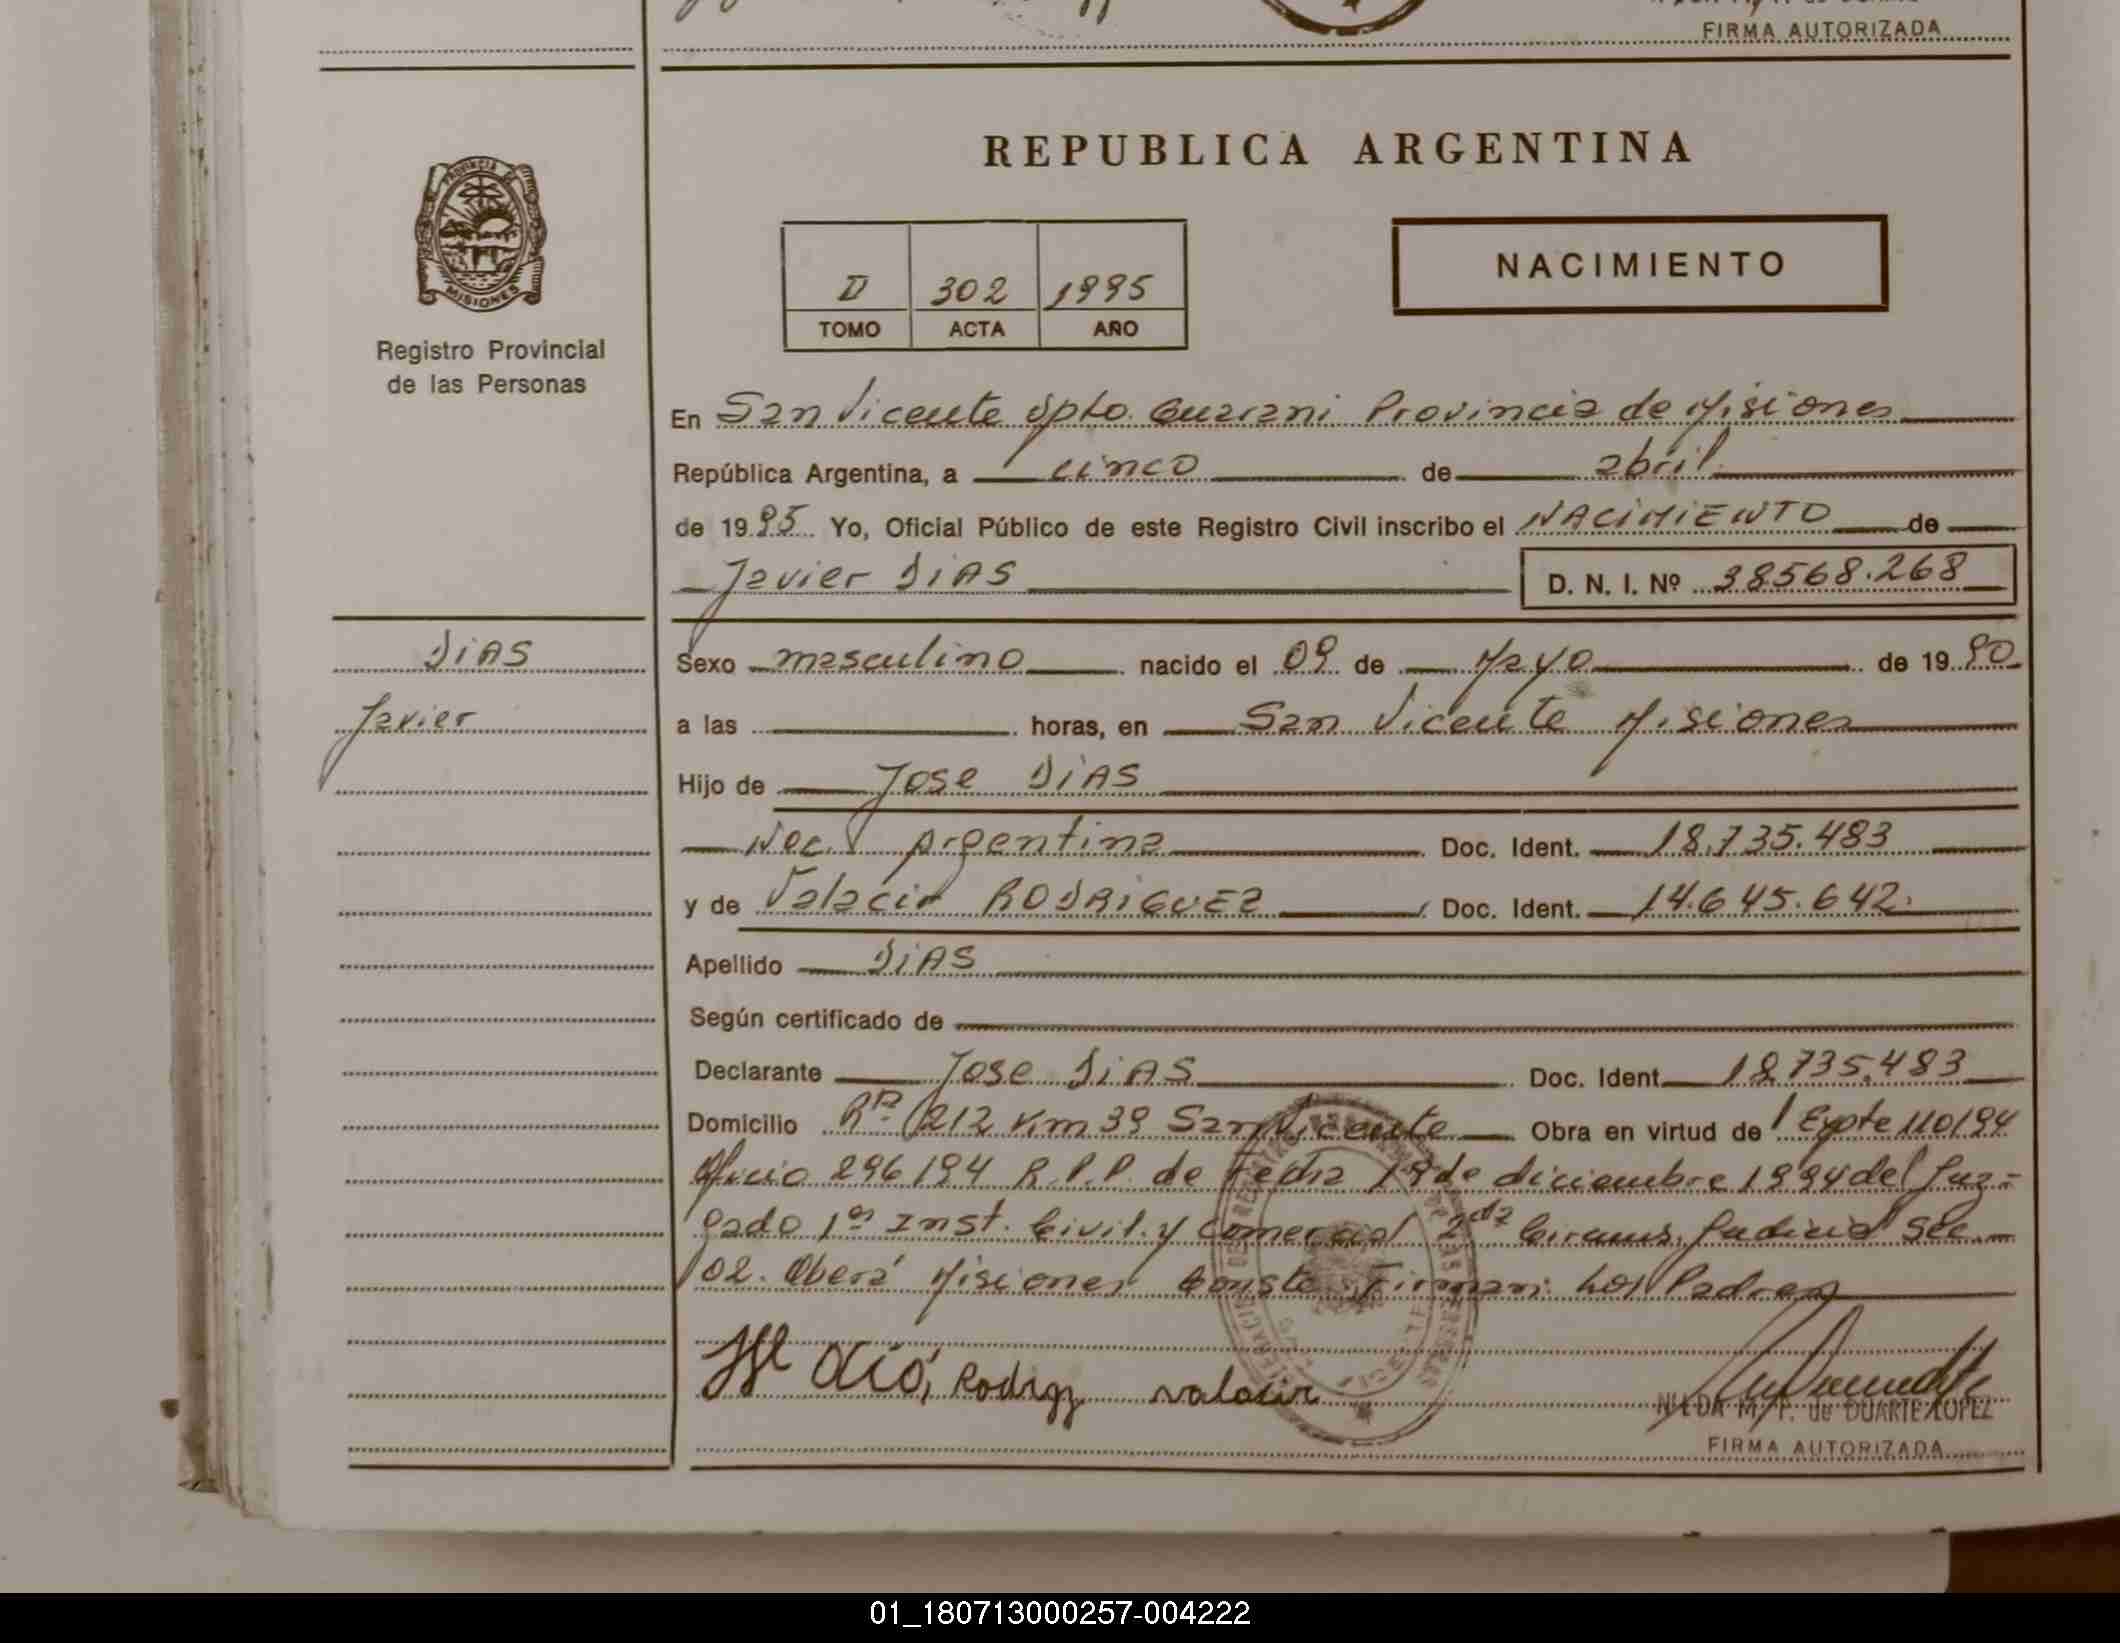 FIRMA AUTORIZADA
PROVINCIA DE
MISIONES
Registro Provincial
de las Personas
REPUBLICA ARGENTINA
II 302 1995
TOMO ACTA AÑO
NACIMIENTO
En San Vicente Dpto. Guarani Provincia de Misiones
República Argentina, a cinco de abril
de 1995 Yo, Oficial Público de este Registro Civil inscribo el NACIMIENTO de
Javier DIAS D. N. I. Nº 38568.268
DIAS
Javier
Sexo masculino nacido el 09 de Mayo de 1990
a las horas, en San Vicente Misiones
Hijo de Jose DIAS
Nac. Argentina Doc. Ident. 18.735.483
y de Valacir RODRIGUEZ Doc. Ident. 14.645.642.
Apellido DIAS
Según certificado de
Declarante Jose DIAS Doc. Ident. 18.735.483
Domicilio 212 Km 39 San Vicente Obra en virtud de Expte 110/94
Oficio 296/94 R.P.P. de Fecha 19 de diciembre 1994 del Juz-
gado 1ª Inst. Civil y Comercial 2da Circuns. Judicial Sec.
02. Oberá Misiones Conste Firman: Los Padres
Rodigz valacir
NILDA M. P. de DUARTE LOPEZ
FIRMA AUTORIZADA
01_180713000257-004222